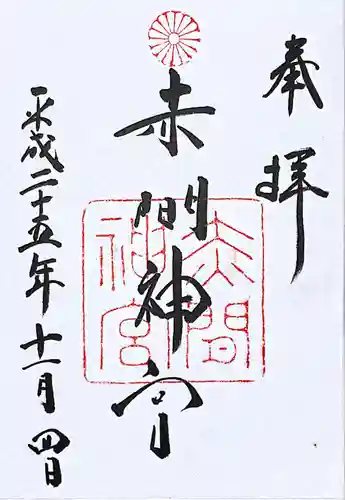 奉拝
赤間神宮
赤間神宮
平成二十五年十一月四日